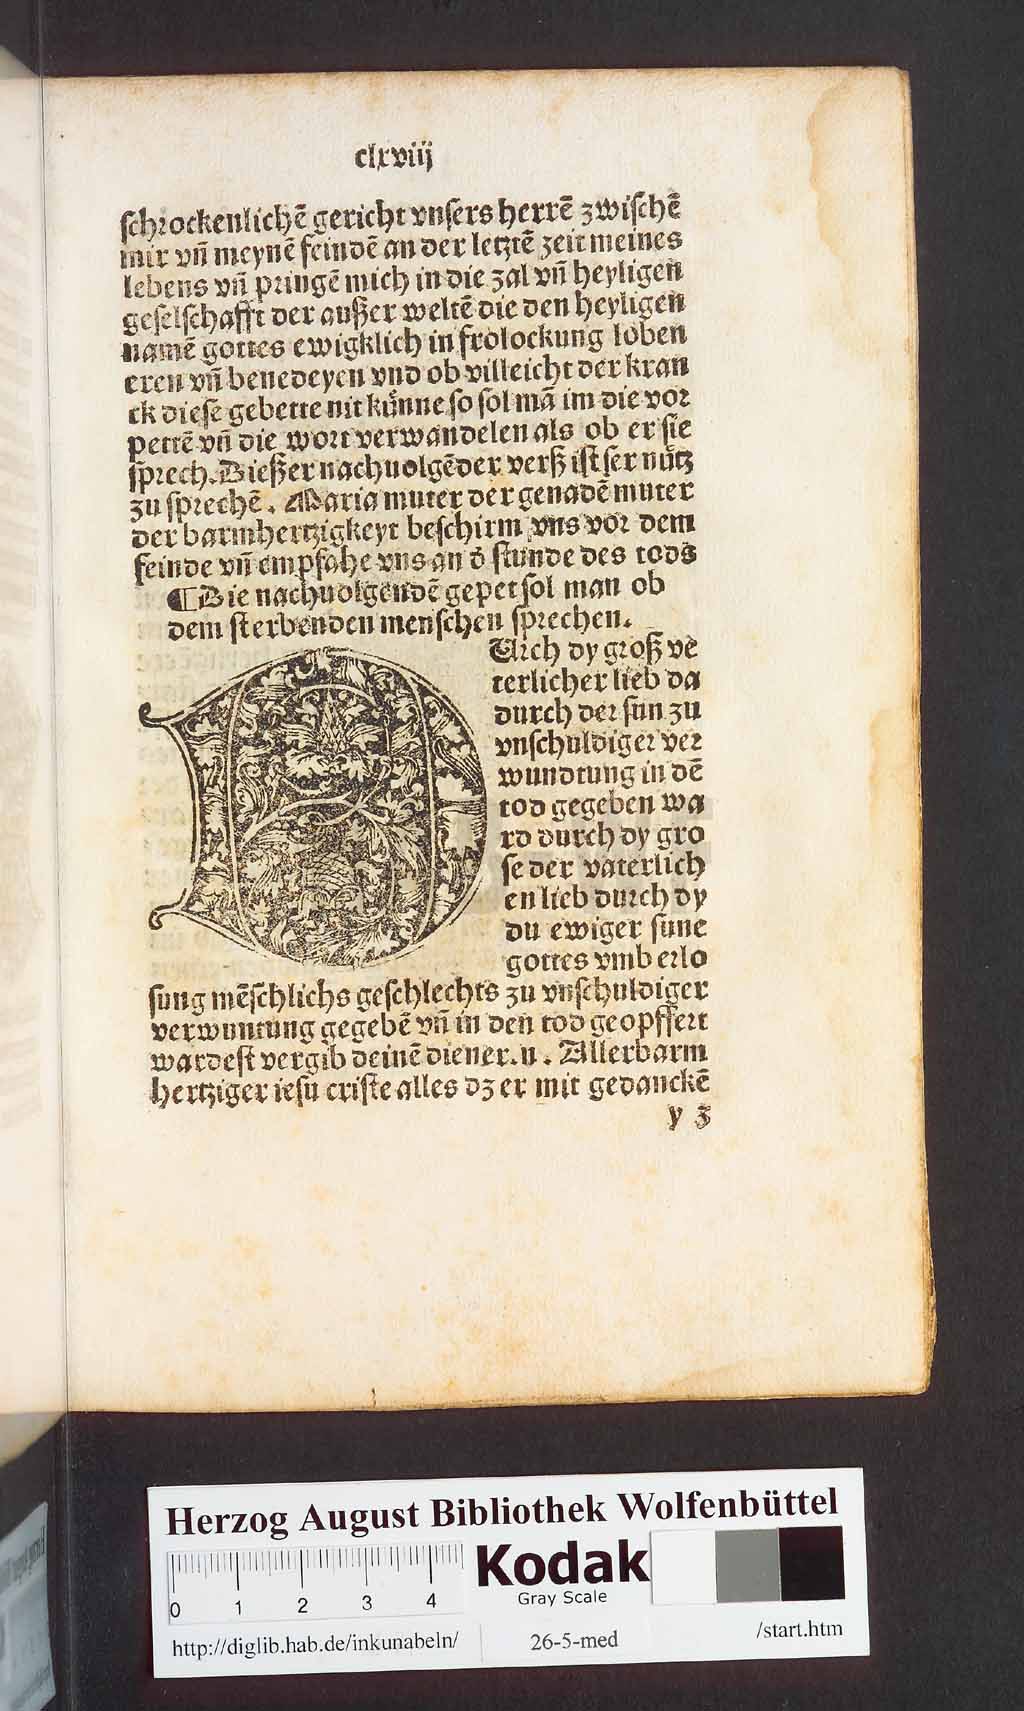 clxviij
schrockenlichē gericht vnsers herrē zwischē
mir vn̄ meynē feindē an der letztē zeit meines
lebens vn̄ pringē mich in die zal vn̄ heyligen
geselschafft der außer weltē die den heyligen
namē gottes ewigklich in frolockung loben
eren vn̄ benedeyen vnd ob villeicht der kran
ck diese gebette nit kůnne so sol mā im die vor
pettē vn̄ die wort verwandelen als ob er sie
sprech. Dießer nachuolgēder verß ist ser nůtz
zu sprechē. Maria muter der genadē muter
der barmhertzigkeyt beschirm vns vor dem
feinde vn̄ empfahe vns an d̓ stunde des tods
¶ Die nachuolgendē gepet sol man ob
dem sterbenden menschen sprechen.
DUrch dy groß ve
terlicher lieb da
durch der sun zu
vnschuldiger ver
wundtung in dē
tod gegeben wa
rd durch dy gro
se der vaterlich
en lieb durch dy
du ewiger sune
gottes vmb erlo
sung mēschlichs geschlechts zu vnschuldiger
verwuntung gegebē vn̄ in den tod geopffert
wardest vergib deinē diener. n. Allerbarm
hertziger iesu criste alles dz er mit gedanckē
y 3
Herzog August Bibliothek Wolfenbüttel
0 1 2 3 4
Kodak
Gray Scale
http://diglib.hab.de/inkunabeln/ 26-5-med /start.htm